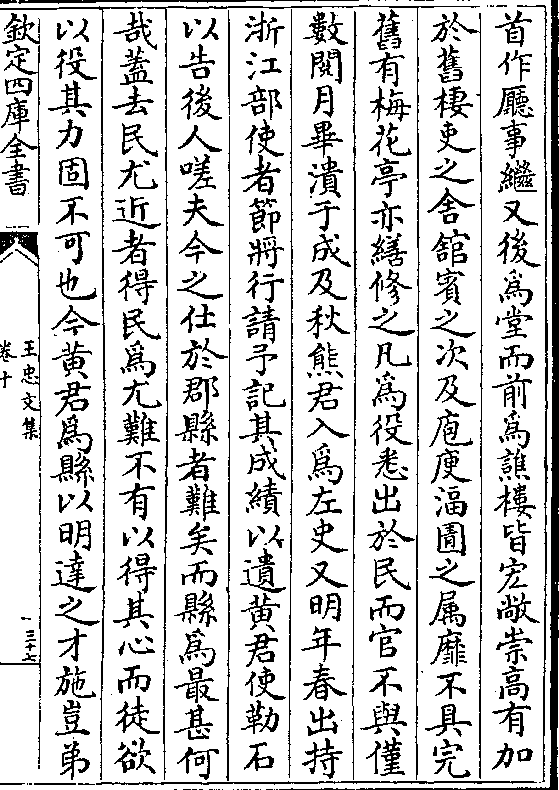 首作廳事繼又後為堂而前為譙樓皆宏敞崇高有加
於舊棲吏之舍舘賓之次及庖庾湢圊之属靡不具完
舊有梅花亭亦繕修之凡為役悉出於民而官不與僅
數閱月畢潰于成及秋熊君入為左史又明年春出持
浙江部使者節將行請予記其成績以遺黄君使勒石
以告後人嗟夫今之仕於郡縣者難矣而縣為最甚何
哉蓋去民尤近者得民為尤難不有以得其心而徒欲
以役其力固不可也今黄君為縣以明達之才施豈弟
欽定四庫全書
王忠文集
卷十
三十七